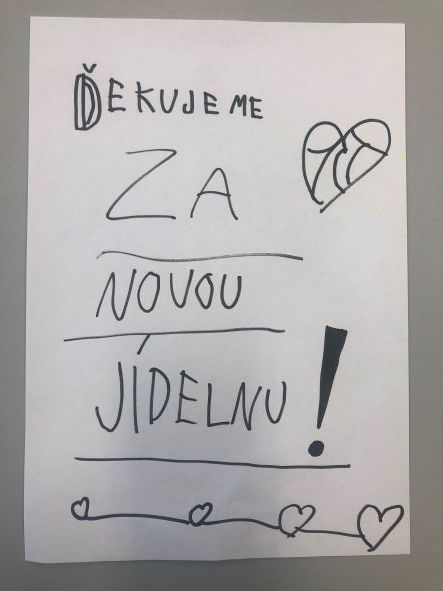 ĎEKUJEME
ZA
NOVOU
JÍDELNU!